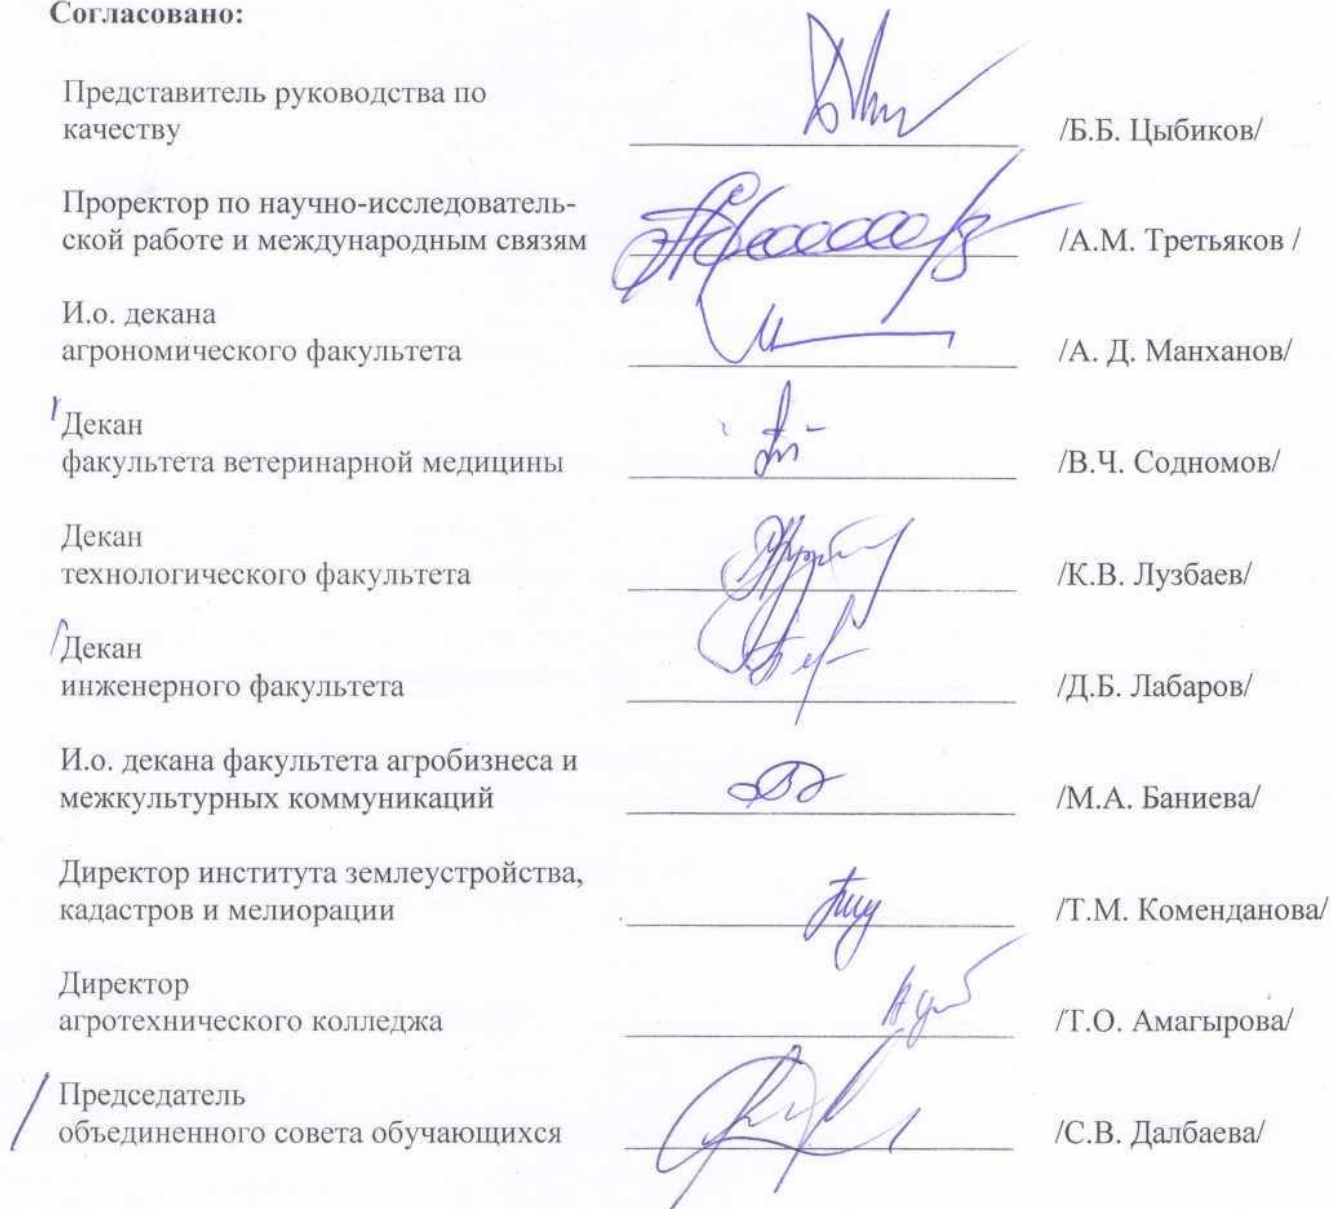 Согласовано:
Представитель руководства по
качеству /Б.Б. Цыбиков/
Проректор по научно-исследователь-
ской работе и международным связям /А.М. Третьяков /
И.о. декана
агрономического факультета /А. Д. Манханов/
Декан
факультета ветеринарной медицины /В.Ч. Содномов/
Декан
технологического факультета /К.В. Лузбаев/
Декан
инженерного факультета /Д.Б. Лабаров/
И.о. декана факультета агробизнеса и
межкультурных коммуникаций /М.А. Баниева/
Директор института землеустройства,
кадастров и мелиорации /Т.М. Коменданова/
Директор
агротехнического колледжа /Т.О. Амагырова/
Председатель
объединенного совета обучающихся /С.В. Далбаева/